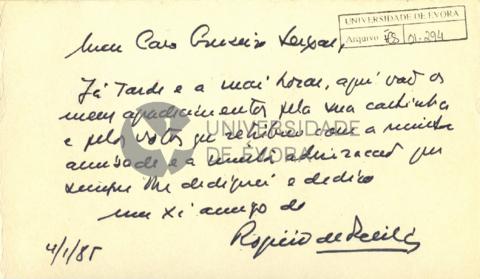 UNIVERSIDADE DE ÉVORA
Arquivo ES 01-294
Meu Caro Cruzeiro Seixas,
Já tarde e a más horas, aqui vão os
meus agradecimentos pela sua cartinha
e pelos votos que retribuo com a minha
amizade e a muita admiração que
sempre lhe dediquei e dedico
um xi amigo do
4/1/85
UNIVERSIDADE
DE ÉVORA